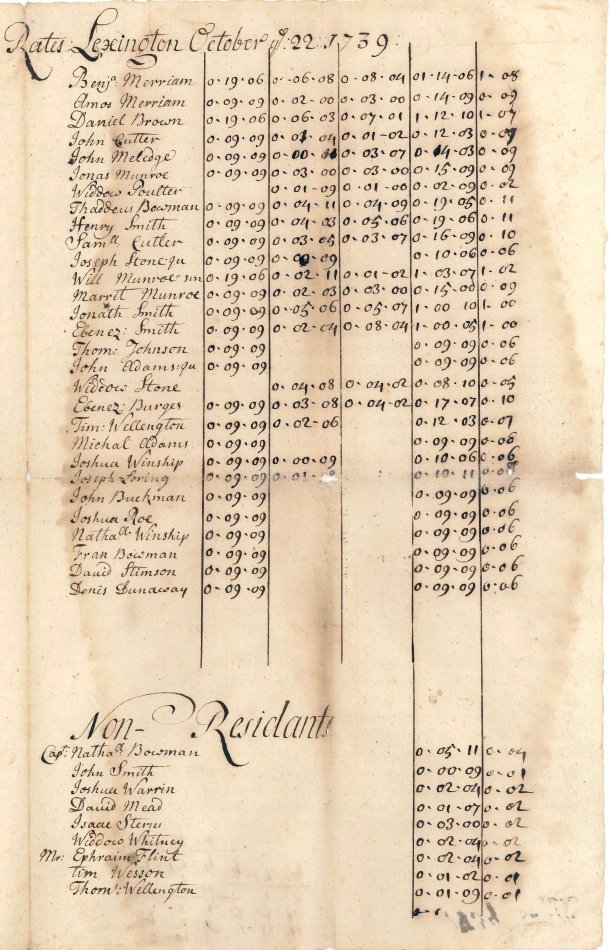 Rates: Lexington October yᵉ 22 1739
Benjᵃ Merriam 0·19·06 0·06·08 0·08·04 01·14·06 1·08
Amos Merriam 0·09·09 0·02·00 0·03·00 0·14·09 0·09
Daniel Brown 0·19·06 0·06·03 0·07·01 1·12·10 1·07
John Cutler 0·09·09 0·01·04 0·01·02 0·12·03
John Meledge 0·09·09 0·03·07 0·14·03 0·09
Jonas Munroe 0·09·09 0·03·00 0·03·00 0·15·09 0·09
Widdow Poulter 0·01·09 0·01·00 0·02·09 0·02
Thaddeus Bowman 0·09·09 0·04·11 0·04·09 0·19·05 0·11
Henry Smith 0·09·09 0·04·03 0·05·06 0·19·06 0·11
Samˡˡ Cutler 0·09·09 0·03·05 0·03·07 0·16·09 0·10
Joseph Stone:ju 0·09·09 0·10·06 0·06
Will Munroe 0·19·06 0·02·11 0·01·02 1·03·07 1·02
Marrit Munroe 0·09·09 0·02·03 0·03·00 0·15·00 0·09
Jonath Smith 0·09·09 0·05·06 0·05·07 1·00·10 1·00
Ebenez: Smith 0·09·09 0·02·04 0·08·04 1·00·05 1·00
Thom: Johnson 0·09·09 0·09·09 0·06
John Adams:ju 0·09·09 0·09·09 0·06
Widdow Stone 0·04·08 0·04·02 0·08·10 0·05
Ebenez: Burges 0·09·09 0·03·08 0·04·02 0·17·07 0·10
Tim: Wellengton 0·09·09 0·02·06 0·12·03 0·07
Michal Adams 0·09·09 0·09·09 0·06
Joshua Winship 0·09·09 0·00·09 0·10·06 0·06
Joseph Loring 0·09·09 0·10·11
John Buckman 0·09·09 0·09·09 0·06
Joshua Roe 0·09·09 0·09·09 0·06
Nathaˡˡ Winship 0·09·09 0·09·09 0·06
Fran Bowman 0·09·09 0·09·09 0·06
David Stimson 0·09·09 0·09·09 0·06
Denis Dunaway 0·09·09 0·09·09 0·06
Non-Residants
Capᵗ: Nathaˡˡ Bowman 0·05·11 0·04
John Smith 0·00·09 0·01
Joshua Warrin 0·02·04 0·02
David Mead 0·01·07 0·02
Isaac Sterns 0·03·00 0·02
Widdow Whitney 0·02·04 0·02
Mr: Ephraim Flint 0·02·04 0·02
Tim Wesson 0·01·02 0·01
Thomˢ: Wellengton 0·01·09 0·01